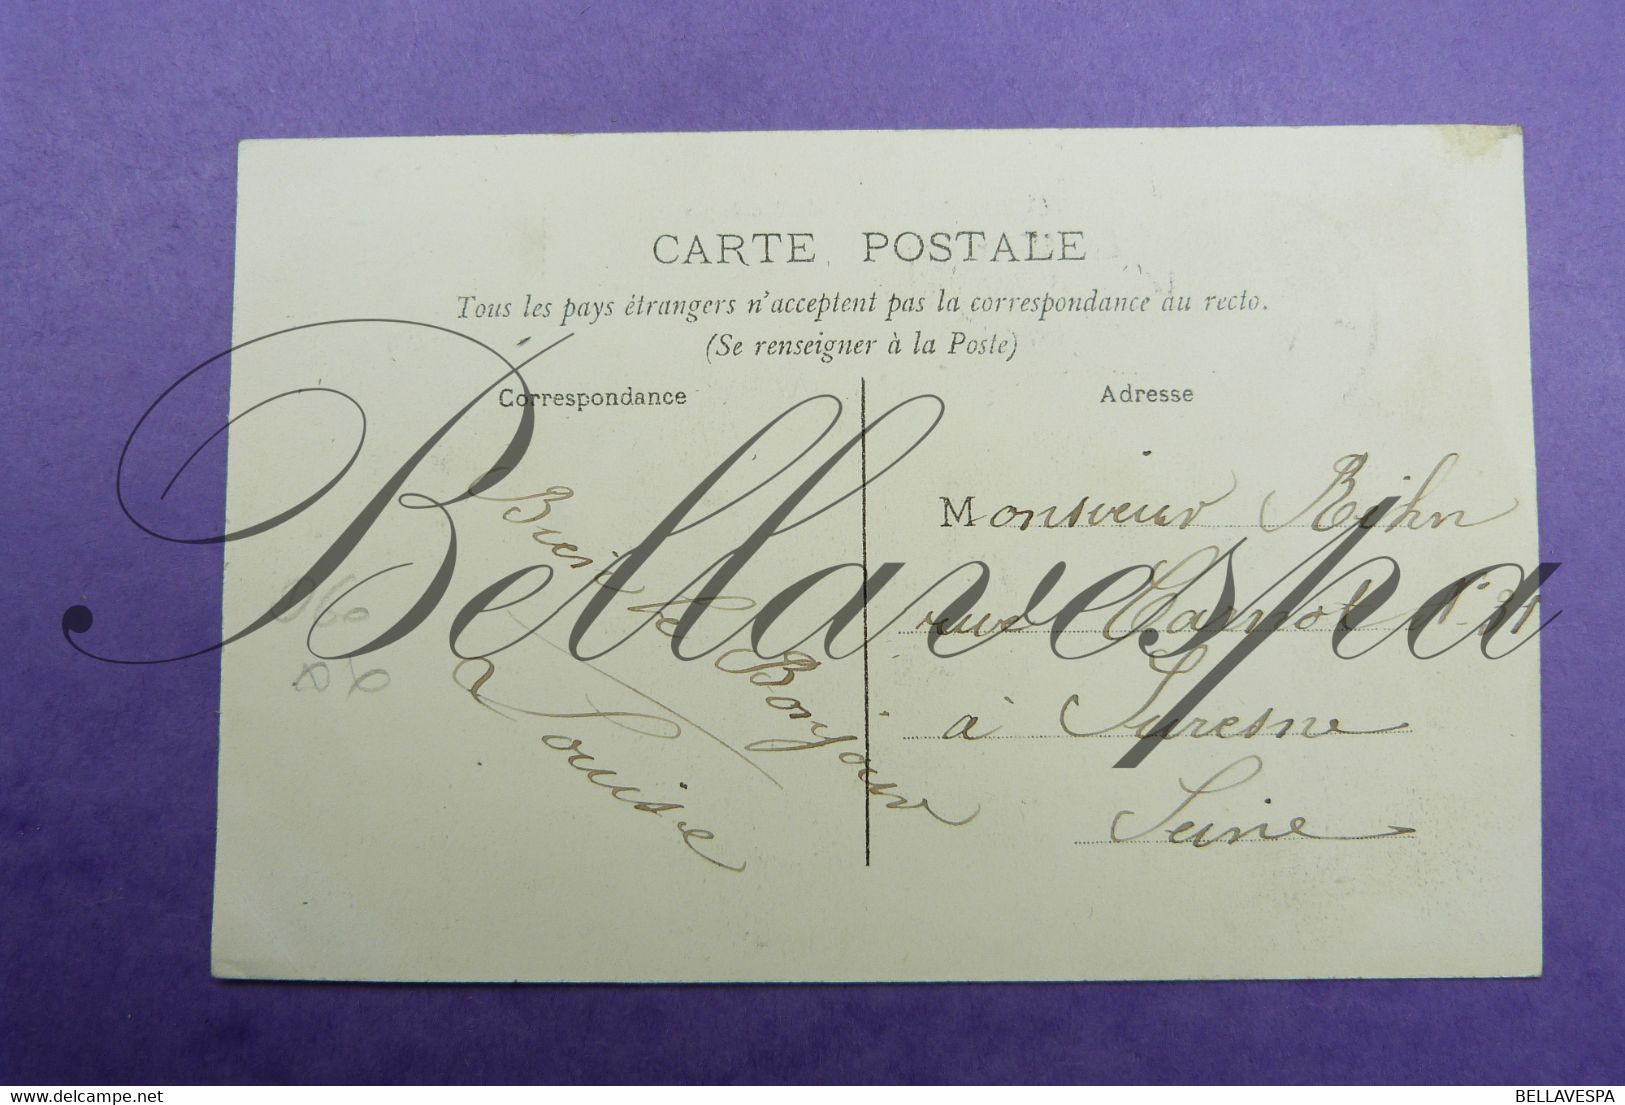 CARTE POSTALE
Tous les pays étrangers n'acceptent pas la correspondance au recto.
(Se renseigner à la Poste)
Correspondance
Adresse
Bien le Bonjour
Louise
Monsieur Rihn
rue Carnot N° 31
à Suresne
Seine
Bellavespa
delcampe.net
BELLAVESPA